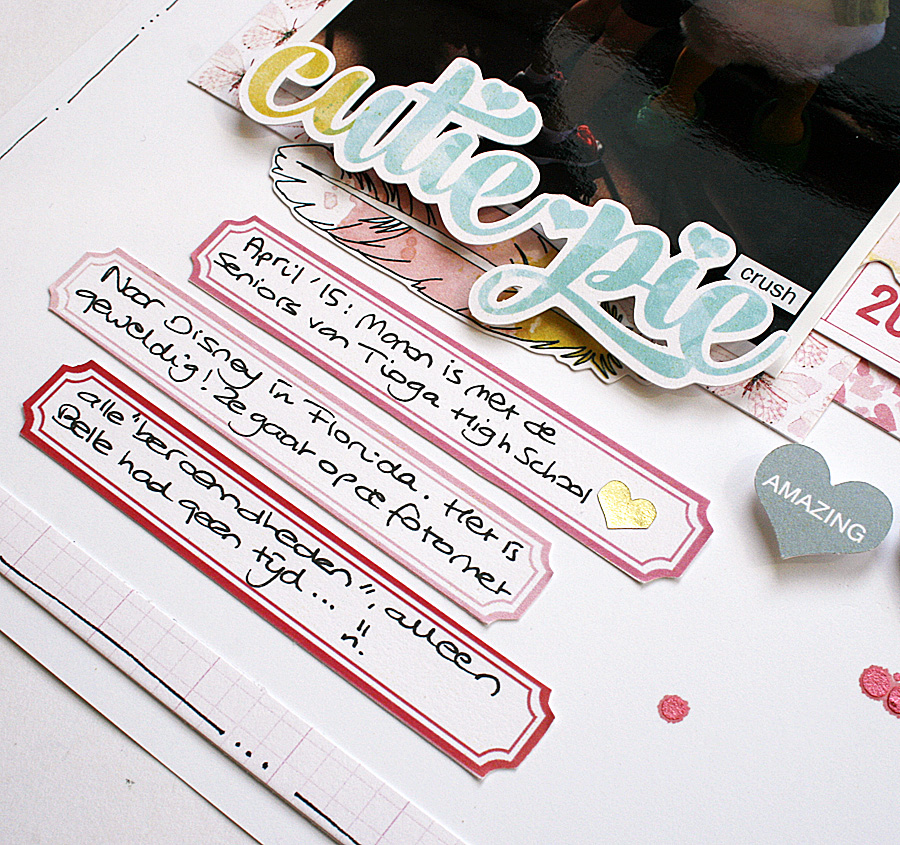 cutie pie
crush
20
AMAZING
April '15: Manon is met de
seniors van Tioga High School
Naar Disney in Florida. Het is
geweldig! Ze gaat op de foto met
alle "beroemdheden", alleen
Belle had geen tijd...